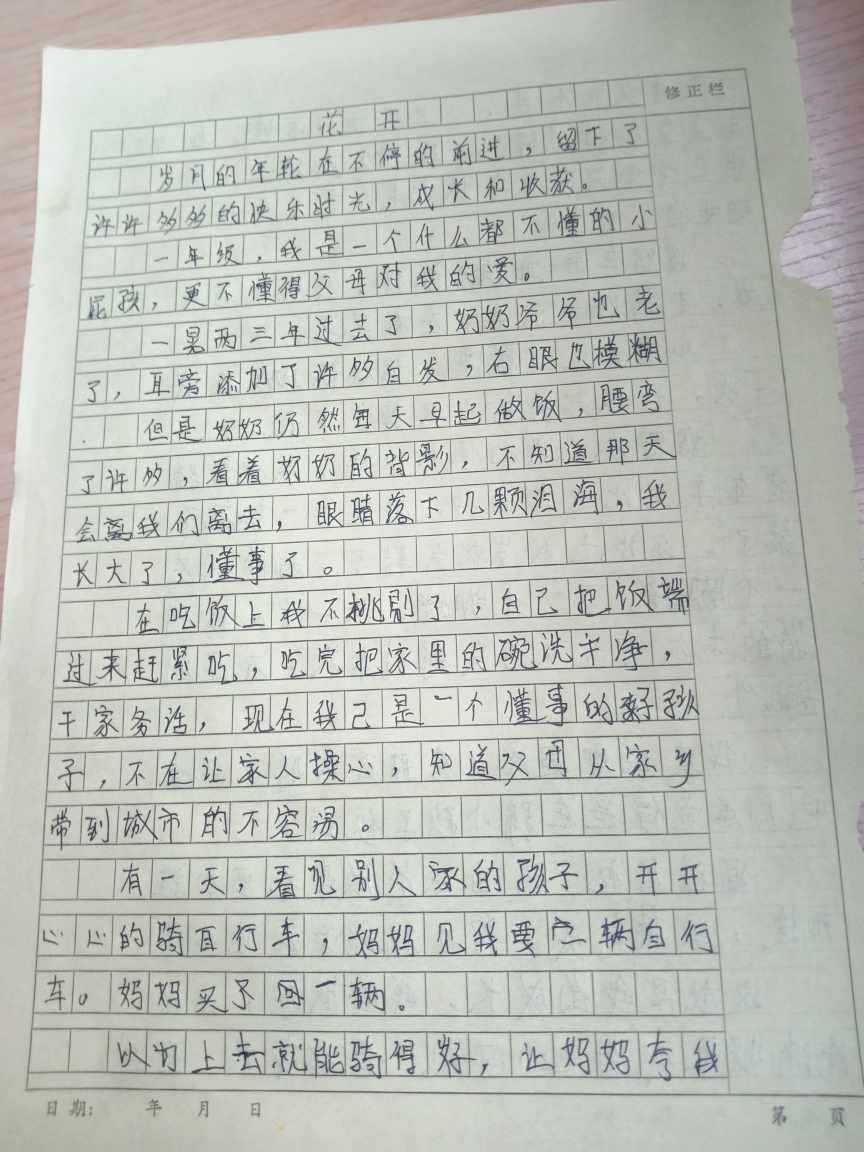 修正栏
花开
岁月的年轮在不停的前进，留下了
许许多多的快乐时光，成长和收获。
一年级，我是一个什么都不懂的小
屁孩，更不懂得父母对我的爱。
一晃两三年过去了，奶奶爷爷也老
了，耳旁添加了许多白发，右眼也模糊
．但是奶奶仍然每天早起做饭，腰弯
了许多，看着奶奶的背影，不知道那天
会离我们离去，眼睛落下几颗泪海，我
长大了，懂事了。
在吃饭上我不挑剔了，自己把饭端
过来赶紧吃，吃完把家里的碗洗干净，
干家务活，现在我己是一个懂事的孩
子，不在让家人操心，知道父母从家乡
带到城市的不容易。
有一天，看见别人家的孩子，开开
心心的骑自行车，妈妈见我要一辆自行
车。妈妈买予回一辆。
以为上去就能骑得好，让妈妈夸我
日期： 年 月 日 第 页